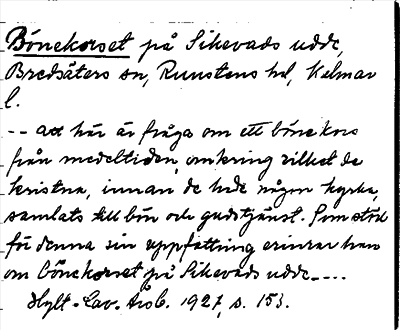 Bönekorset på Sikevads udde,
Bredsäters sn, Runstens hd, Kalmar
l.
-- att här är fråga om ett bönekors
från medeltiden, omkring vilket de
kristna, innan de hade någon kyrka,
samlats till bön och gudstjänst. Som stöd
för denna sin uppfattning erinrar han
om bönekorset på Sikevads udde....
Hylt.-Cav. Årsb. 1927, s. 153.